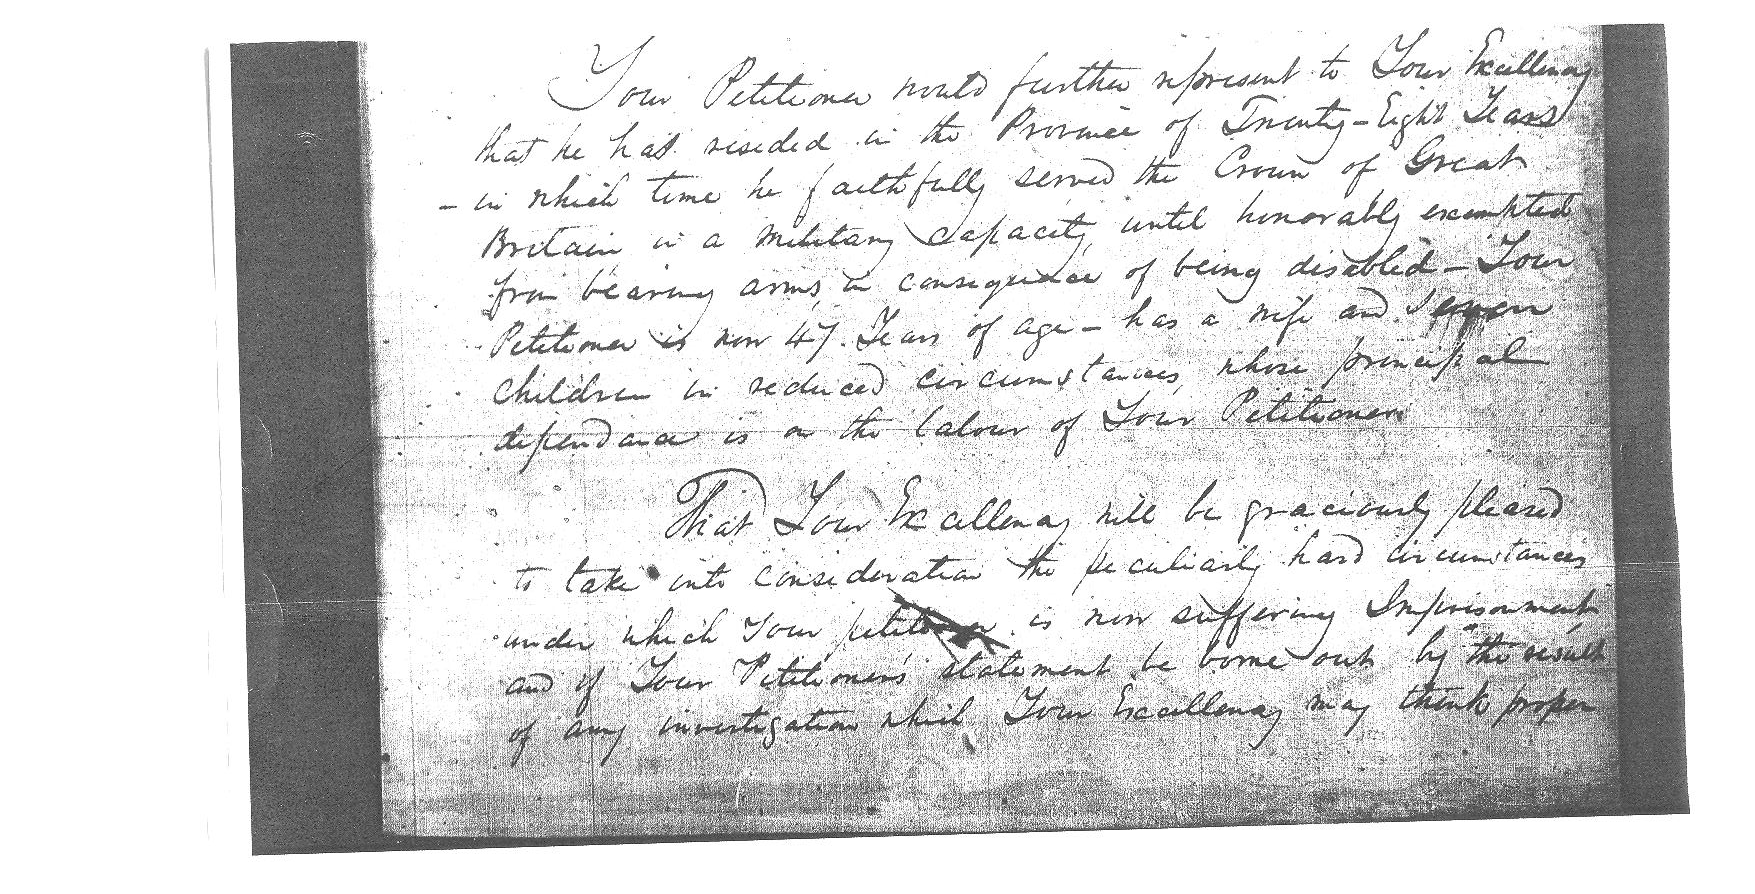 Your Petitioner would further represent to Your Excellency
that he has resided in the Province of Twenty-Eight Years
- in which time he faithfully served the Crown of Great
Britain in a military capacity until honorably exempted
from bearing arms, in consequence of being disabled - Your
Petitioner is now 47. Years of age - has a wife and seven
children in reduced circumstances, whose principal
dependance is on the labour of Your Petitioner
That Your Excellency will be graciously pleased
to take into consideration the peculiarly hard circumstances
under which Your petitioner is now suffering Imprisonment
and if Your Petitioner's statement be borne out by the result
of any investigation which Your Excellency may think proper